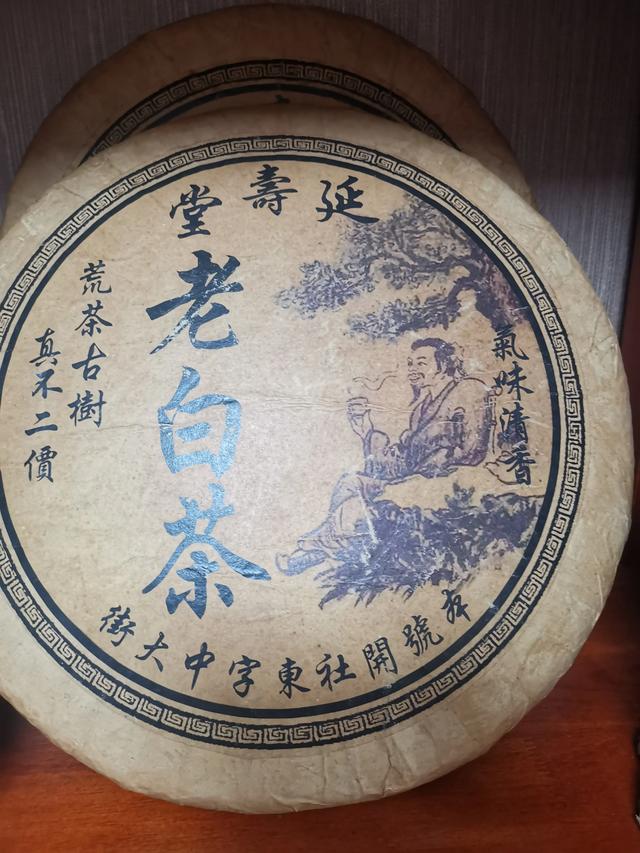 延壽堂
氣味清香
老白茶
荒茶古樹
真不二價
本號開社東字中大街